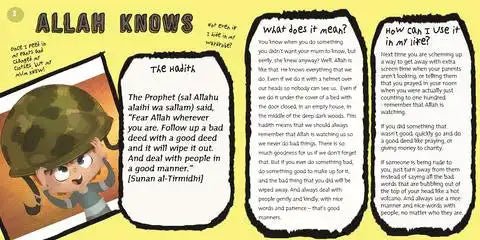 1
ALLAH KNOWS
not even if
I hide in my
wardrobe?
my mum knew!
The Hadith
The Prophet (sal Allahu
alaihi wa sallam) said,
"Fear Allah wherever
you are. Follow up a bad
deed with a good deed
and it will wipe it out.
And deal with people in
a good manner."
[Sunan al-Tirmidhi]
What does it mean?
You know when you do something
you didn't want your mum to know, but
eerily, she knew anyway? Well, Allah is
like that. He knows everything that we
do. Even if we do it with a helmet over
our heads so nobody can see us. Even if
we do it under the cover of a bed with
the door closed, in an empty house, in
the middle of the deep dark woods. This
hadith means that we should always
remember that Allah is watching us so
we never do bad things. There is so
much goodness for us if we don't forget
that. But if you ever do something bad,
do something good to make up for it,
and the bad thing that you did will be
wiped away. And always deal with
people gently and kindly, with nice
words and patience – that's good
manners.
How can I use it
in my life?
Next time you are scheming up
a way to get away with extra
screen time when your parents
aren't looking, or telling them
that you prayed in your room
when you were actually just
counting to one hundred
-remember that Allah is
watching.
If you did something that
wasn't good, quickly go and do
a good deed like praying, or
giving money to charity.
If someone is being rude to
you, just turn away from them
instead of saying all the bad
words that are bubbling out of
the top of your head like a hot
volcano. And always use a nice
manner and nice words with
people, no matter who they are.